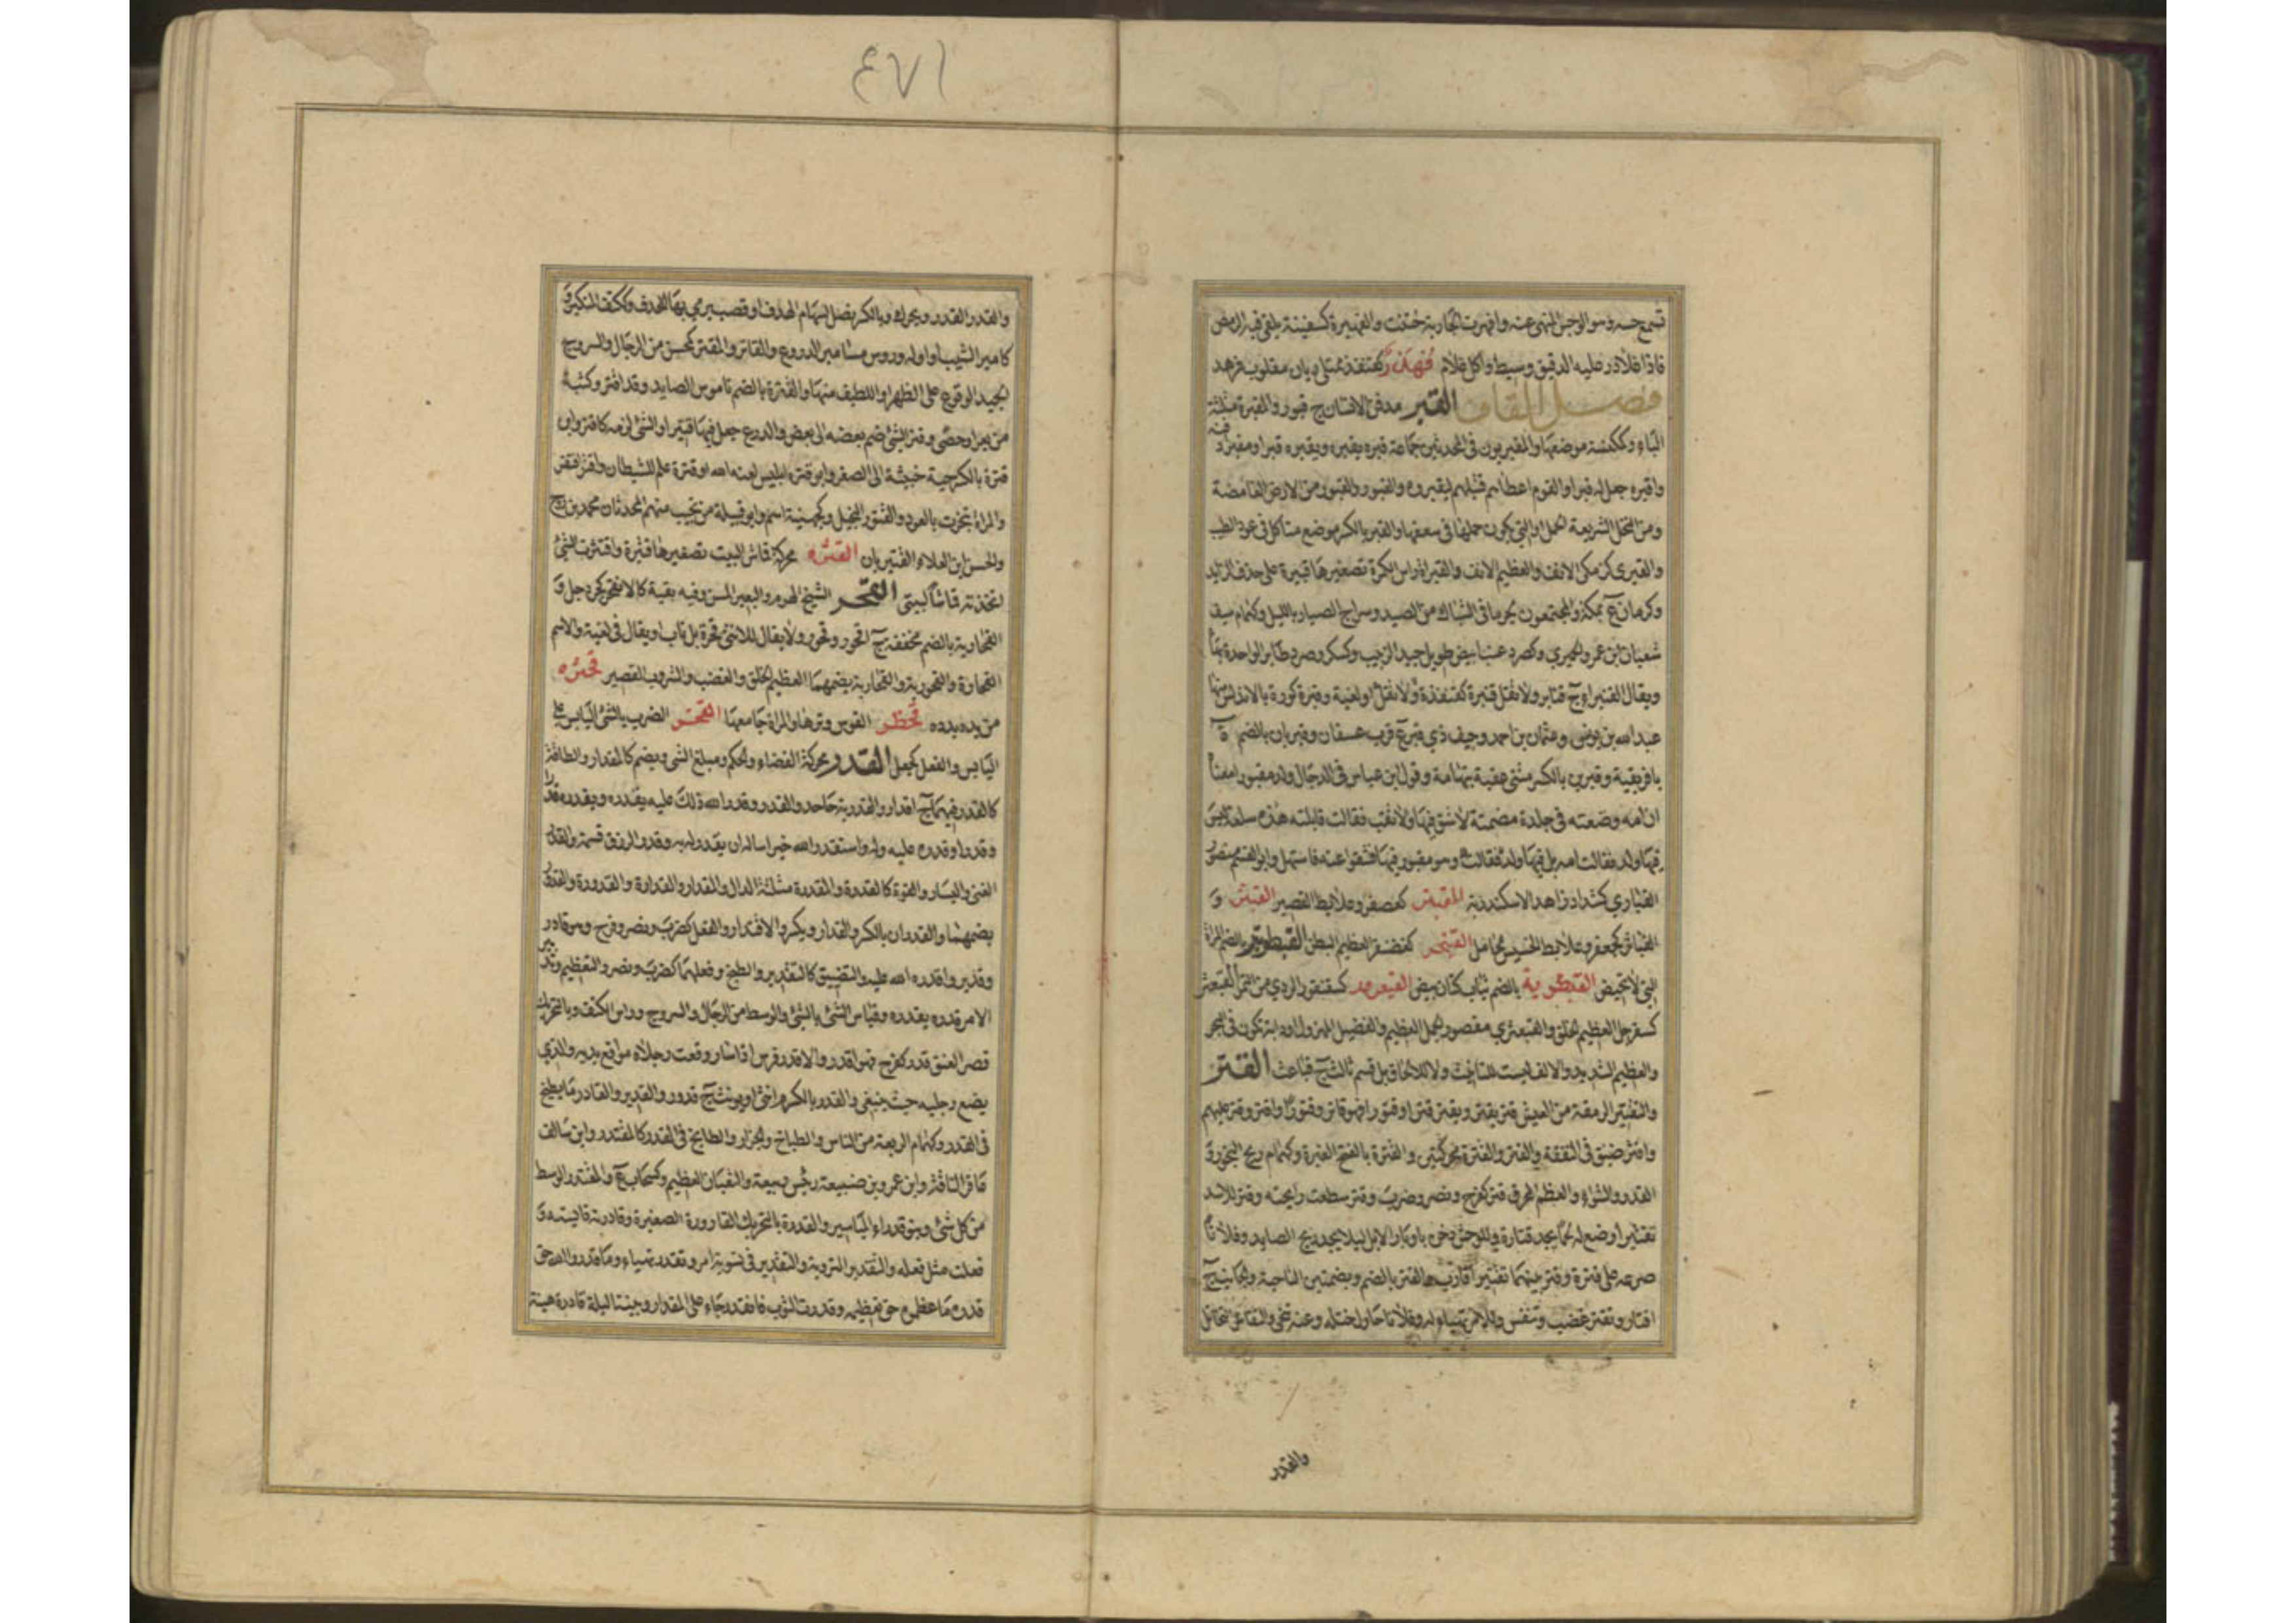 تسمع حسه وهو الوجس المنهي عنه وافهرت الجارية ختنت والفهيرة كسفينة يلقى فيه الرضف
فاذا غلا ذر عليه الدقيق وسيط واكل فلان فهذر كقنفذ ممتلى ريان مقلوب فرهد
فصل القاف القبر مدفن الانسان ج قبور والمقبرة مثلثة
الباء وكمكنسة موضعها والمقبريون في المحدثين جماعة قبره يقبره ويقبره قبرا ومقبرا دفنه
واقبره جعل له قبرا والقوم اعطاهم قتيلهم ليقبروه والقبور والقبور من الارض الغامضة
ومن النخل السريعة الحمل او التي يكون حملها في سعفها والقبر بالكسر موضع متاكل في عود الطيب
والقبرى كزمكى الانف والعظيم الانف والقبراة راس الكمرة تصغيرها قبيرة على حذف الزايد
وكرمان ع بمكة والمجتمعون لجر ما في الشباك من الصيد وسراج الصياد بالليل وكهمام سيف
شعبان بن عمرو الحميري وكصرد عنب ابيض طويل جيد الزبيب وكسكر وصرد طاير الواحدة بهاء
ويقال القنبراء ج قنابر ولا تقل قنبرة كقنفذة ولا تقل او لغية وقبرة كورة بالاندلس منها
عبد الله بن يونس وعثمان بن احمد وخيف ذي قبر ع قرب عسفان وقبريان بالضم ة
بافريقية وقبرين بالكسر مثنى عقبة بتهامة وقول ابن عباس في الدجال ولد مقبورا معناه
ان امه وضعته في جلدة مصمتة لا شق فيها ولا نقب فقالت قابلته هذه سلعة ليس
فيها ولد فقالت امه بل فيها ولد فقالت وهو مقبور فيها فشقوا عنه فاستهل وابو القسم منصور
القباري كشداد زاهد الاسكندرية القبتر كعصفر وعلابط القصير القبثر و
القباثر كجعفر وعلابط الخسيس الخامل القبنجر كغضنفر العظيم البطن القبطير بالضم المراة
التي لا تحيض القبطرية بالضم ثياب كتان بيض القبعرور كسقنقور الردي من التمر القبعثر
كسفرجل العظيم الخلق والقبعثرى مقصور الجمل العظيم والفصيل المهزول ودابة تكون في البحر
والعظيم الشديد والالف ليست للتانيث ولا للالحاق بل قسم ثالث ج قباعث القتر
والتقتير الرمقة من العيش قتر يقتر ويقتر قترا وقتورا فهو قاتر وقتور واقتر وقتر عليهم
واقتر ضيق في النفقة والقتر والقترة محركتين والقترة بالفتح الغبرة وكهمام ريح البخور و
القدر والشواء والعظم المحرق قتر كفرح ونصر وضرب وقتر سطعت رايحته وقتر للاسد
تقتيرا وضع له لحما يجد قتارة وللوحش دخن باوبار الابل ليلا يجد ريح الصايد وفلانا
صرعه على قترة وقتر بينهما تقتيرا قارب والقتر بالضم وبضمتين الناحية والجانب ج
اقتار وتقتر غضب وتنفش وللامر تهياء له وفلانا حاول ختله وعنه تنحى والتقاتر التخاتل
والقدر
٤٧١
والقدر القدر ويحرك وبالكسر نصل لسهام الهدف او قصب يرمى بها الهدف وككتف المتكبر و
كامير الشيب او اوله وروس مسامير الدروع والقاتر والمقتر كمحسن من الرحال والسروج
الجيد الوقوع على الظهر او اللطيف منها والقترة بالضم ناموس الصايد وقد اقتر وكثبة
من بعر او حصى وقتر الشئ ضم بعضه الى بعض والدرع جعل فيها قتيرا والشئ لزمه كاقتر وابن
قترة بالكسر حية خبيثة الى الصغر وابو قترة ابليس لعنه الله او قترة علم للشيطان واقتر افتقر
والمراة تبخرت بالعود والقتور البخيل وكجهينة اسم وابو قبيلة من تجيب منهم المحدثان محمد بن روح
والحسن ابن العلاء القتيريان القثرة محركة قماش البيت تصغيرها قثيرة واقتثرت الشئ
اتخذته قماشا لبيتي القحر الشيخ الهرم والبعير المسن وفيه بقية كالانقحر كجردحل و
القحارية بالضم مخففة ج اقحر وقحور ولا يقال للانثى قحرة بل ناب او يقال في لغية والاسم
القحارة والقحورية والقحارية بضمهما العظيم الخلق والغضب والشروب القصير قحثره
من يده بدده قحطر القوس وترها والمراة جامعها القخر الضرب بالشئ اليابس على
اليابس والفعل كجعل القدر محركة القضاء والحكم ومبلغ الشئ ويضم كالمقدار والطاقة
كالقدر فيهما ج اقدار والقدرية جاحدوا القدر وقدر الله ذلك عليه يقدره ويقدره قدرا
وقدرا وقدره عليه وله واستقدر الله خيرا ساله ان يقدر له به وقدر الرزق قسمه والقدر
الغنى واليسار والقوة كالقدرة والمقدرة مثلثة الدال والمقدار والقدارة والقدورة والقدور
بضمهما والقدران بالكسر والقدار ويكسر والاقتدار والفعل كضرب ونصر وفرح وهو قادر
وقدير واقدره الله عليه والتضييق كالتقدير والطبخ وفعلهما كضرب ونصر والتعظيم وتدبير
الامر قدره يقدره وقياس الشئ بالشئ والوسط من الرحال والسروج وراس الكتف وبالتحريك
قصر العنق قدر كفرح فهو اقدر والاقدر فرس اذا سار وقعت رجلاه مواقع يديه والذي
يضع رجليه حيث ينبغي والقدر بالكسر م انثى او يونث ج قدور والقدير والقادر ما يطبخ
في القدر وكهمام الربعة من الناس والطباخ والجزار والطابخ في القدر كالمقتدر وابن سالف
عاقر الناقة وابن عمرو بن ضبيعة رئيس ربيعة والثعبان العظيم وكسحاب ع والمقتدر الوسط
من كل شئ وبنو قدراء المياسير والقدرة بالتحريك القارورة الصغيرة وقادرته قايسته و
فعلت مثل فعله والتقدير التروية والتفكير في تسوية امر وتقدر تهياء وما قدروا الله حق
قدره ما عظموه حق تعظيمه وقدرت الثوب فانقدر جاء على المقدار وبيننا ليلة قادرة هينة